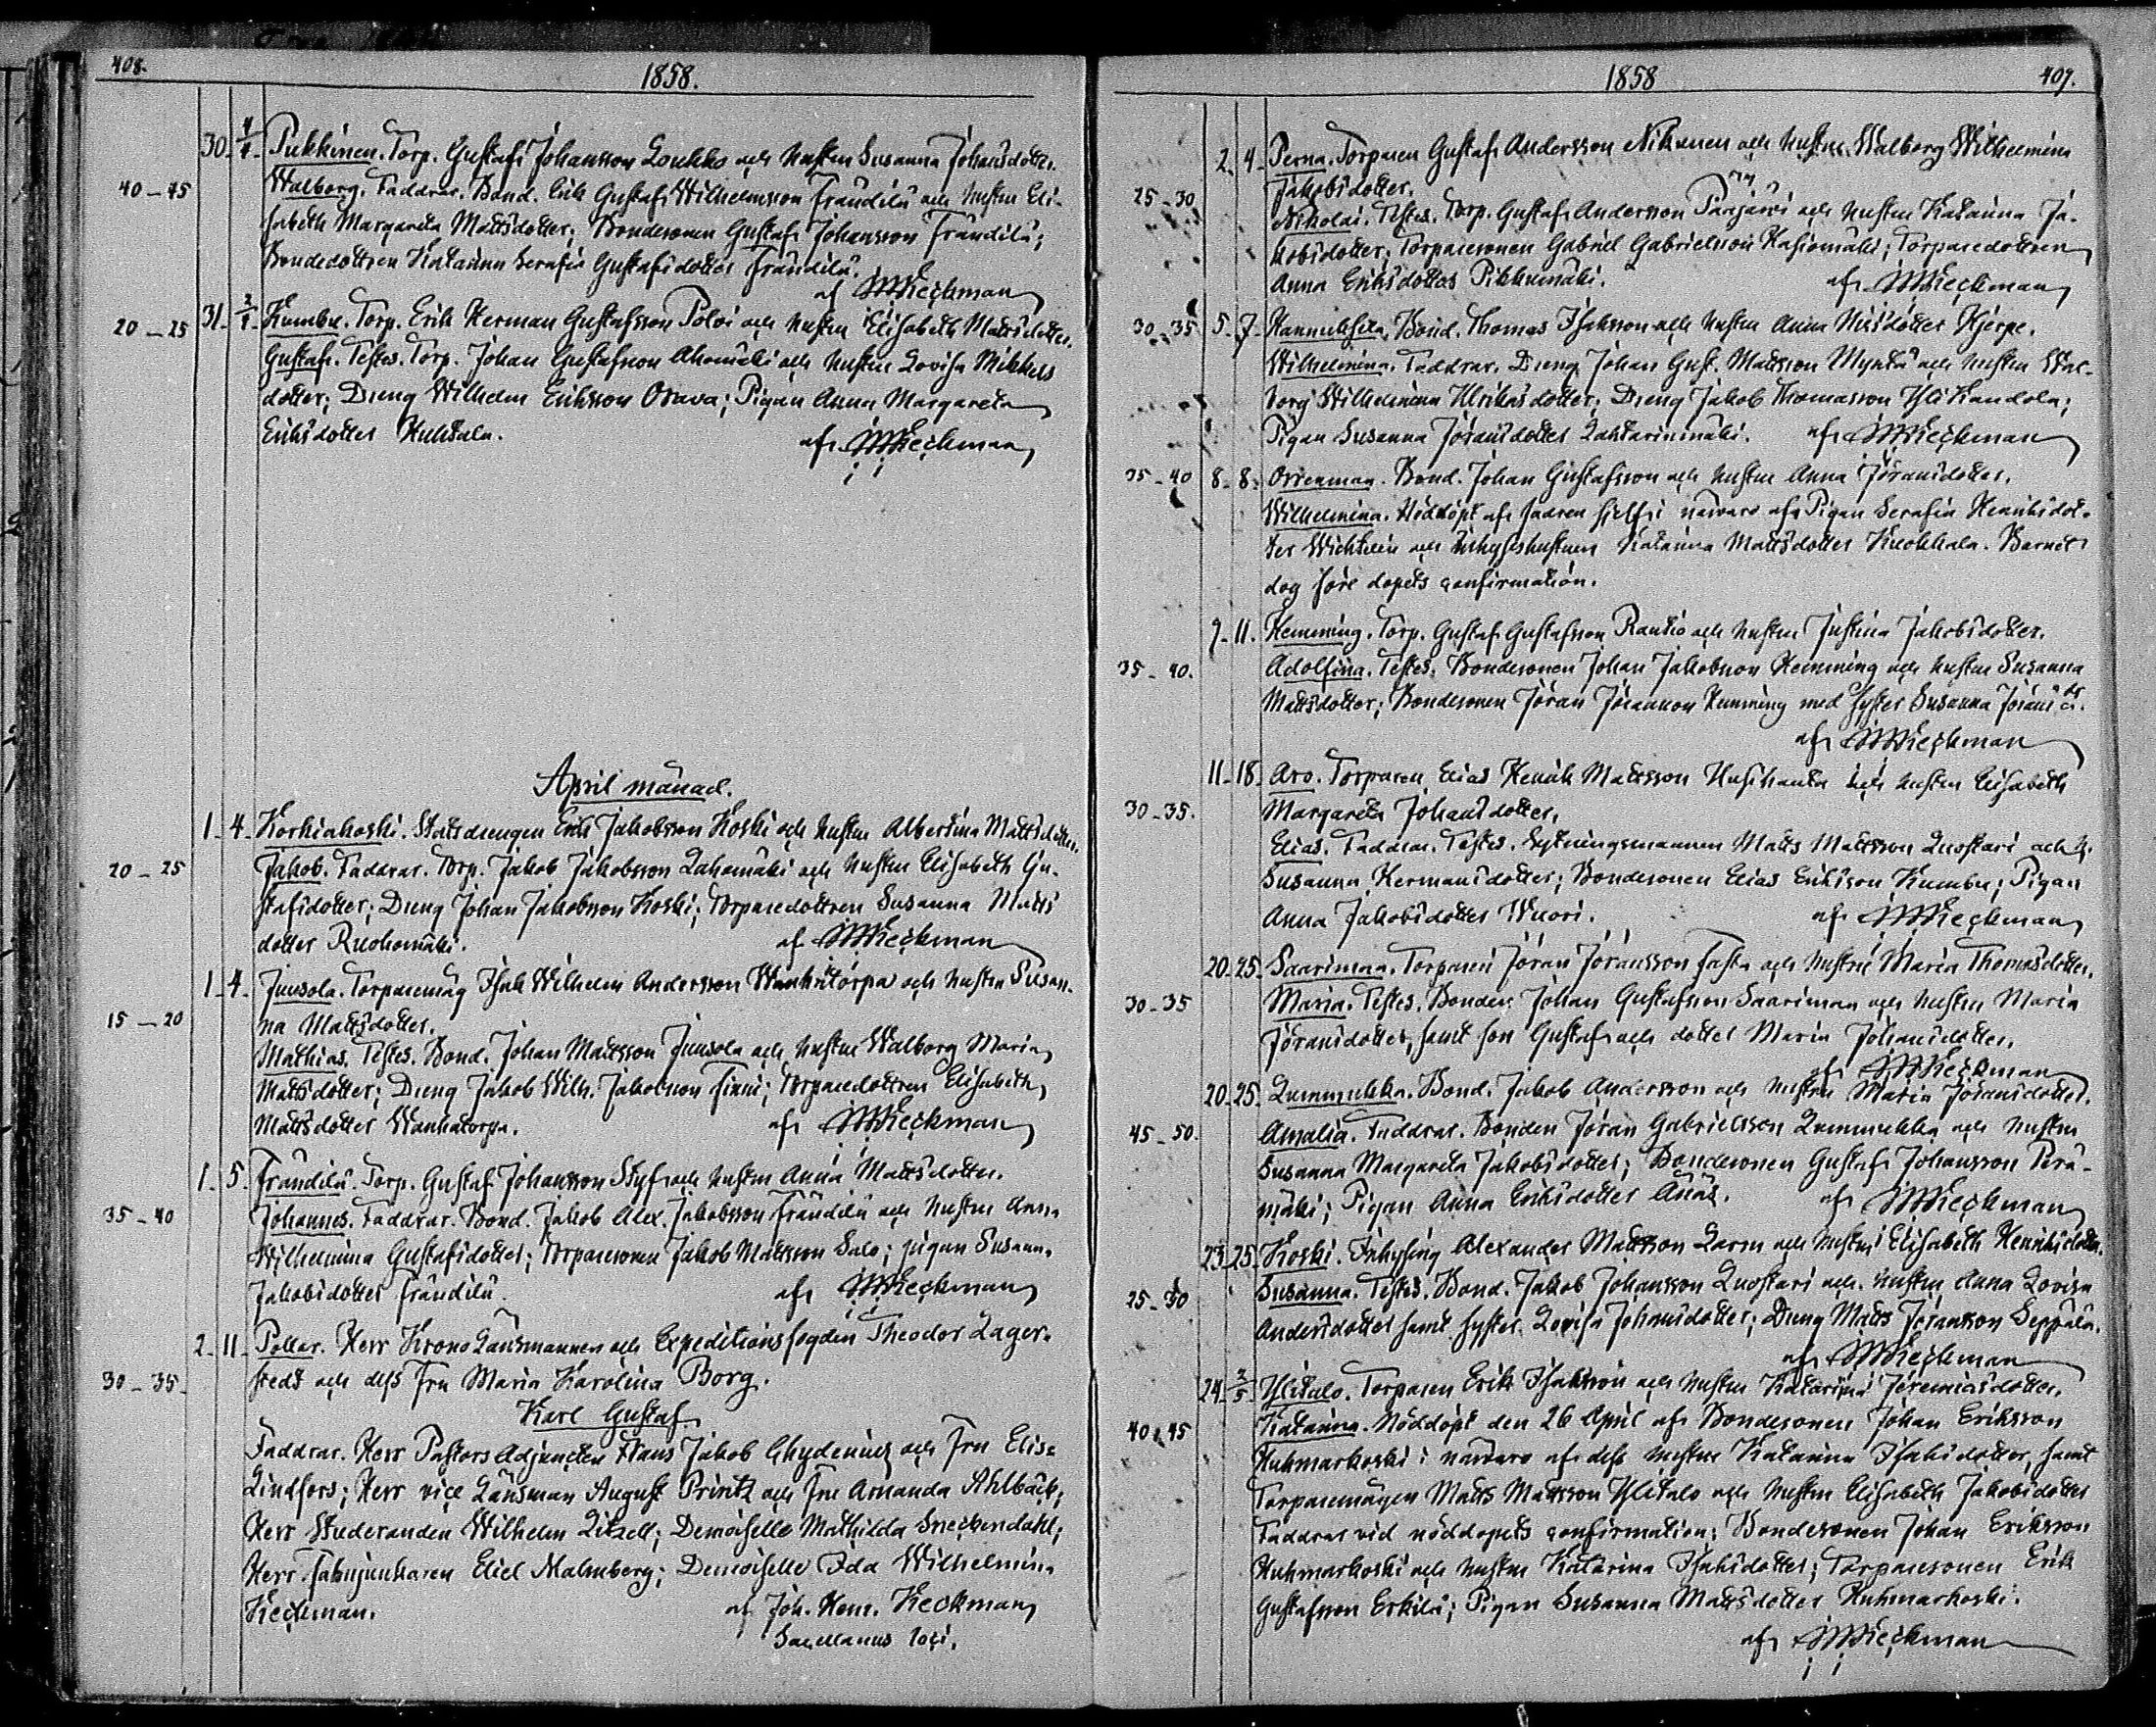 408.
1858.
30. 4/4. Pukkinen. Torp. Gustaf Johansson Loukko och hustru Susanna Johansdotter.
40–45 Walborg. Faddrar. Bond. Erik Gustaf Wilhelmsson Frändilä och hustru Eli-
sabeth Margareta Mattsdotter; Bondesonen Gustaf Johansson Frändilä;
Bondedottren Katarina Serafia Gustafsdotter Frändilä.
af JHKeckman
31. Kumbu. Torp. Erik Herman Gustafsson Polvi och hustru Elisabeth Mattsdotter.
20–25 Gustaf. Testes. Torp. Johan Gustafsson Ahomäki och hustru Lovisa Mikkels
dotter; Dreng Wilhelm Eriksson Orava; Pigan Anna Margareta
Eriksdotter Huhtala.
af JHKeckman
April månad.
1. 4. Korkiakoski. Statsdrengen Erik Jakobsson Koski och hustru Albertina Mattsdotter.
20–25 Jakob. Faddrar. Torp. Jakob Jakobsson Lahomäki och hustru Elisabeth Gu-
stafsdotter; Dreng Johan Jakobsson Koski; Torparedottren Susanna Matts
dotter Ruohomäki.
af JHKeckman
1. 4. Juusola. Torparemåg Isak Wilhelm Andersson Wanhatorpa och hustru Susan-
15–20 na Mattsdotter.
Mathias. Testes. Bond. Johan Mattsson Juusola och hustru Walborg Maria
Mattsdotter; Dreng Jakob Wilh. Jakobsson Finni; Torparedottren Elisabeth
Mattsdotter Wanhatorpa.
af JHKeckman
1. 5. Frändilä. Torp. Gustaf Johansson Styf och hustru Anna Mattsdotter.
35–40 Johannes. Faddrar. Bond. Jakob Alex. Jakobsson Frändilä och hustru Anna
Wilhelmina Gustafsdotter; Torparesonen Jakob Mattsson Salo; pigan Susanna
Jakobsdotter Frändilä.
af JHKeckman
2. 11. Pollar. Herr Krono Länsmannen och Expeditionsfogden Theodor Lager-
30–35. stedt och dess Fru Maria Karolina Borg.
Karl Gustaf
Faddrar. Herr Pastors Adjuncten Frans Jakob Chydenius och Fru Elise
Lindfors; Herr vice Länsman August Printz och Fru Amanda Ahlbäck;
Herr Studeranden Wilhelm Litzell; Demoiselle Mathilda Sneckendahl;
Herr Fanjunkaren Eliel Malmberg; Demoiselle Ida Wilhelmina
Keckman.
af Joh. Henr. Keckman
Sacellanus loci.
1858
409.
2. 4. Perna. Torparen Gustaf Andersson Nikunen och hustru Walborg Wilhelmina
25–30 Jakobsdotter.
Nikolai. Testes. Torp. Gustaf Andersson och hustru Katarina Ja-
kobsdotter; Torparesonen Gabriel Gabrielsson Hasiomäki; Torparedottren
Anna Eriksdotter Pikkumäki.
af JHKeckman
30–35 5. 7. Hannuksela. Bond. Thomas Isaksson och hustru Anna Nilsdotter Hjerpe.
Wilhelmina. Faddrar. Dreng Johan Gust. Mattsson Myntti och hustru Wal-
borg Wilhelmina Ulriksdotter; Dreng Jakob Thomasson Yli Kandola;
Pigan Susanna Jöransdotter Lahtarinmäki. af JHKeckman
35–40 8. 8. Orrenmaa. Bond. Johan Gustafsson och hustru Anna Jöransdotter.
Wilhelmina. Nöddöpt af fadren sjelf i närvaro af Pigan Serafia Henriksdot-
ter och Inhyseshustrun Katarina Mattsdotter Kuokkala. Barnet
dog före dopets confirmation.
9. 11. Hemming. Torp. Gustaf Gustafsson Rautio och hustru Justina Jakobsdotter.
35–40. Adolfina. Testes. Bondesonen Johan Jakobsson Hemming och hustru Susanna
Mattsdotter; Bondesonen Jöran Jöransson Hemming med syster Susanna Jörans dr.
af JHKeckman
11. 18. Aro. Torparen Elias Henrik Mattsson Huhtanta och hustru Elisabeth
30–35. Margareta Johansdotter.
Elias. Faddrar. Testes. Sytningsmannen Matts Mattsson Luostari och h.
Susanna Hermansdotter; Bondesonen Elias Eriksson Kumbu; Pigan
Anna Jakobsdotter Wuori. af JHKeckman
20. 25. Saarimaa. Torparen Jöran Jöransson Fasta och hustru Maria Thomasdotter.
30–35 Maria. Testes. Bonden Johan Gustafsson Saarimaa och hustru Maria
Jöransdotter, samt son Gustaf och dotter Maria Johansdotter.
af JHKeckman
20. 25. Lummukka. Bond. Jakob Andersson och hustru Maria Jöransdotter.
45–50. Amalia. Faddrar. Bonden Jöran Gabrielsson Lummukka och hustru
Susanna Margareta Jakobsdotter; Bondesonen Gustaf Johansson Perä-
mäki; Pigan Anna Eriksdotter Änäs. af JHKeckman
23. 25. Koski. Inhysing Alexander Mattsson Larm och hustru Elisabeth Henriksdotter.
25–30 Susanna. Testes. Bond. Jakob Johansson Luostari och hustru Anna Lovisa
Andersdotter samt syster Lovisa Johansdotter; Dreng Matts Jöransson Seppälä.
af JHKeckman
24. 2/5. Ylitalo. Torparen Erik Isaksson och hustru Katarina Jeremiasdotter.
40–45 Katarina. Nöddöpt den 26 April af Bondesonen Johan Eriksson
Huhmarkoski i närvaro af dess hustru Katarina Isaksdotter, samt
Torparemågen Matts Mattsson Ylitalo och hustru Elisabeth Jakobsdotter
Faddrar vid nöddopets confirmation: Bondesonen Johan Eriksson
Huhmarkoski och hustru Katarina Isaksdotter; Torparesonen Erik
Gustafsson Erkilä; Pigan Susanna Mattsdotter Huhmarkoski.
af JHKeckman